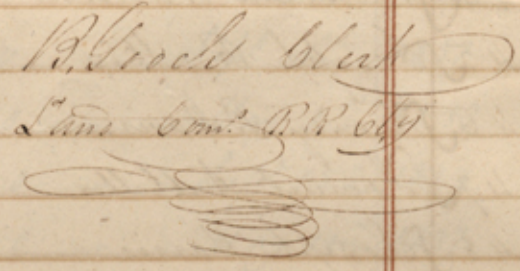 B. Gooch Clerk
Land Com.s R R Cty